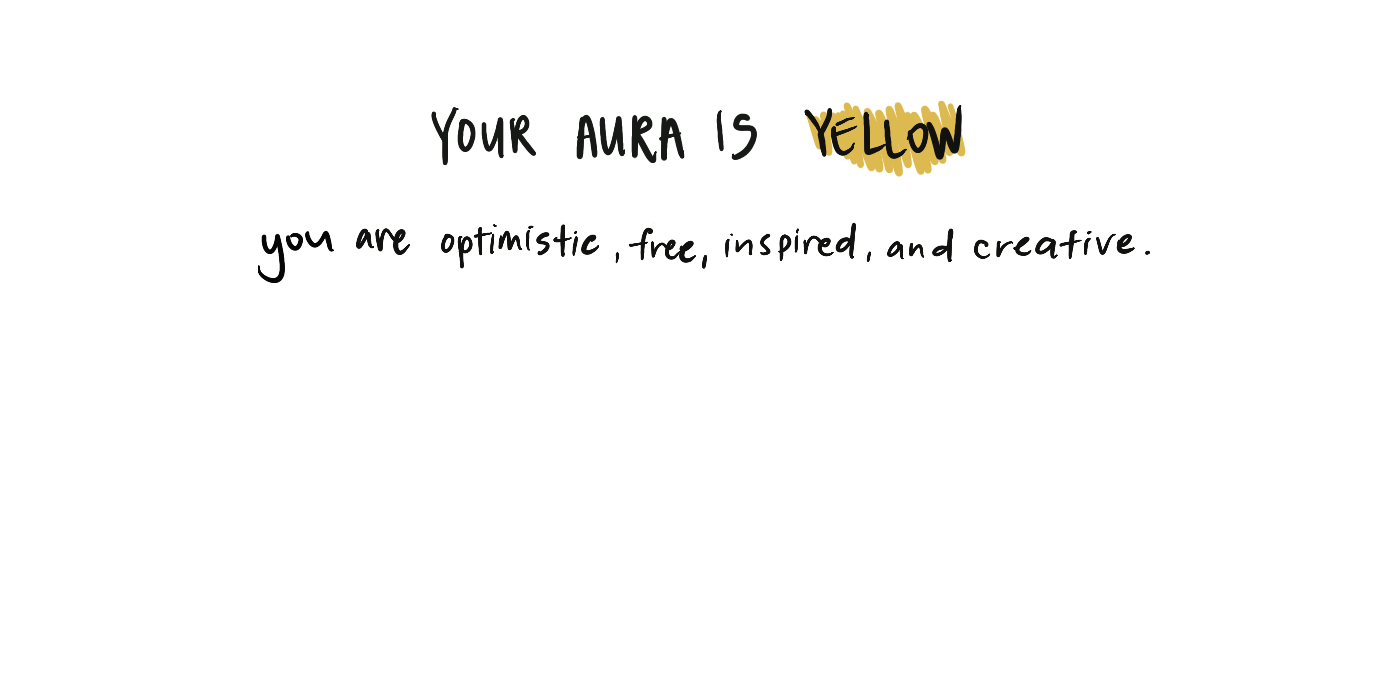 YOUR AURA IS YELLOW
you are optimistic, free, inspired, and creative.